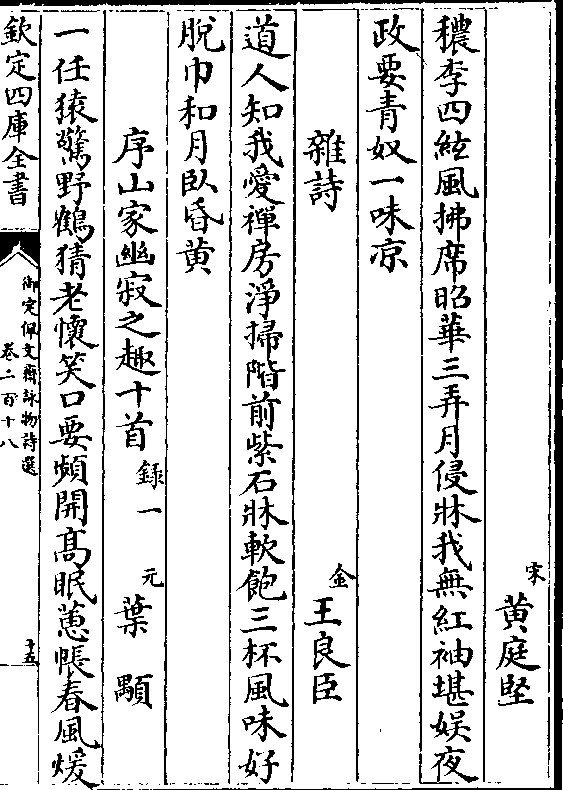 宋 黄庭堅
穠李四絃風拂席昭華三弄月侵牀我無紅袖堪娱夜
政要青奴一味凉
雜詩 金 王良臣
道人知我愛禪房淨掃階前紫石牀軟飽三杯風味好
脫巾和月臥昏黄
序山家幽寂之趣十首 錄一 元 葉顒
一任猿驚野鶴猜老懷笑口要頻開髙眠蕙帳春風煖
欽定四庫全書 御定佩文齋詠物詩選 卷二百十八 十五